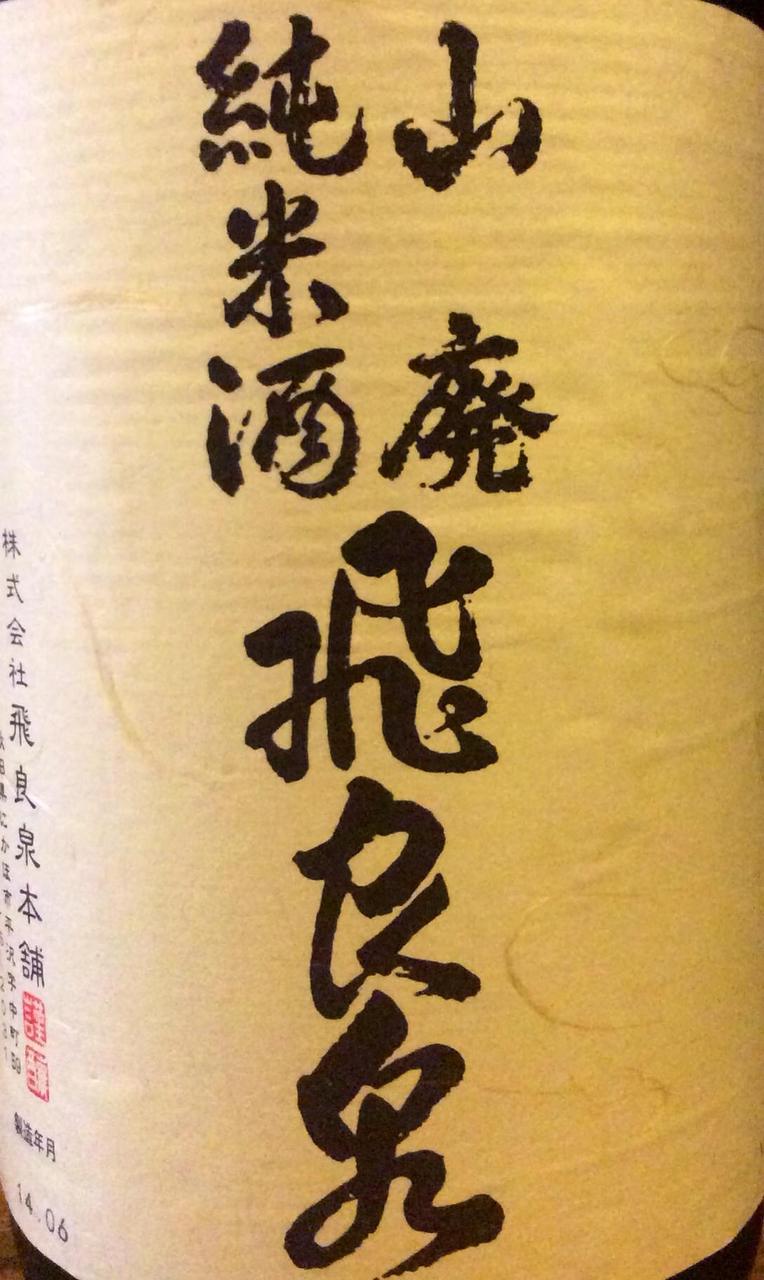 山廃
純米酒
飛良泉
株式会社飛良泉本舗
田県にかほ市平沢字中町59
製造年月
14.06